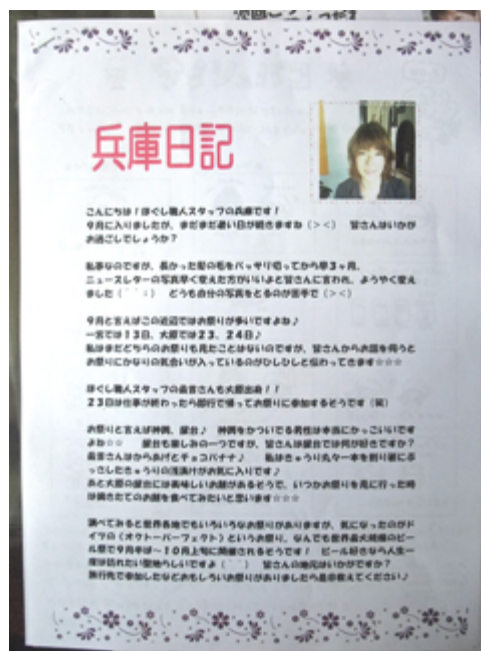 兵庫日記
こんにちは!ほぐし職人スタッフの兵庫です!
9月に入りましたが、まだまだ暑い日が続きますね(><) 皆さんはいかが
お過ごしでしょうか?
私事なのですが、長かった髪の毛をバッサリ切ってから早3ヶ月。
ニュースレターの写真早く変えた方がいいよと皆さんに言われ、ようやく変え
ました どうも自分の写真をとるのが苦手で(><)
9月と言えばこの近辺ではお祭りが多いですよね♪
一宮では13日、大原では23、24日♪
私はまだどちらのお祭りも見たことはないのですが、皆さんからお話を伺うと
お祭りにかなりの気合いが入っているのがひしひしと伝わってきます☆☆☆
ほぐし職人スタッフの さんも大原出身!!
23日は仕事が終わったら即行で帰ってお祭りに参加するそうです(笑)
お祭りと言えば神輿、屋台♪ 神輿をかついでる男性は本当にかっこいいです
よね☆☆ 屋台も楽しみの一つですが、皆さんは屋台では何が好きですか?
さんはからあげとチョコバナナ♪ 私はきゅうり丸々一本を割り箸にぶ
っさしたきゅうりの浅漬けがお気に入りです♪
あと大原の屋台には美味しいお餅があるそうで、いつかお祭りを見に行った時
は焼きたてのお餅を食べてみたいと思います☆☆☆
調べてみると世界各地でもいろいろなお祭りがありますが、気になったのがド
イツの(オクトーバーフェクト)というお祭り。なんでも世界最大規模のビー
ル祭で9月半ば~10月上旬に開催されるそうです! ビール好きなら人生一
度は訪れたい聖地らしいですよ 皆さんの地元はいかがですか?
旅行先で参加したなどおもしろいお祭りがありましたら是非教えてください♪